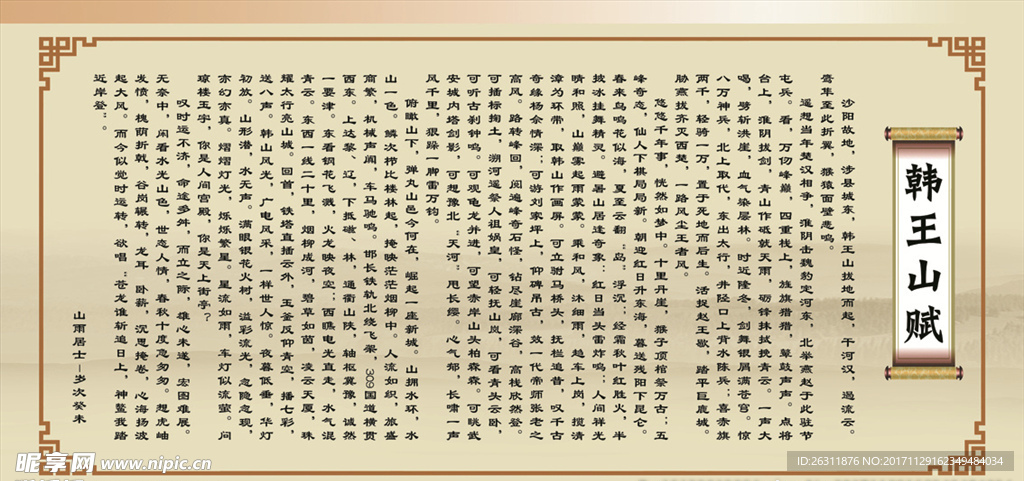 韩王山赋
沙阳故地，涉县城东，韩王山拔地而起，干河汉，遏流云。
鸾隼至此折翼，猴猿面壁悲鸣。
遥想当年楚汉相争，淮阴击魏豹定河东，北举燕赵于此驻节
屯兵。看，万仞峰巅，四重栈上，旌旗猎猎，鼙鼓声声。点将
台上，淮阴拔剑，青山作砥就天雨，砺锋抹拭挽青云。一声大
喝，劈斩洪崖，血气染层林。时近隆冬，剑舞银屑满苍宫。惊
八万神兵，北上取代，东出太行，井陉口上背水陈兵；喜赤旗
两千，轻骑一万，置于死地而后生。活捉赵王歇，踏平巨鹿城。
胁燕拔齐灭西楚，一路风尘王者风。
悠悠千年事，恍然如梦中。十里丹崖，猴子顶棺祭万古；五
峰奇恋，仙人下棋局局新。朝迎红日升东海，暮送残阳下昆仑。
春来鸟鸣花似海，夏至云翻"岛"浮沉；经霜秋叶红胜火，半
披冰挂舞精灵。避暑山居逢奇象：红日当头雷炸鸣；人间祥光
晴和照，山巅雾起雨蒙蒙。乘和风，沐细雨，趟车上岗，揽清
漳为环带，取韩山作画屏。可立驸马桥头，抚栏追昔，叹千古
奇缘杨余情深；可游刘家坪上，仰碑吊古，效一代帝师张老之
高风。路转峰回，阅遍峰奇石怪，钻尽崖廊深谷，高栈欣然登。
可插标掏土，溯河遥祭人祖娲皇，可轻抚山岚，可看青头云卧，
可听古刹钟鸣。可观龟龙并进，可望赤岸山头柏森森。可眺武
安城内塔剑影，可想豫北"天河"甩长缨。心气郁，长啸一声
风千里，狠跺一脚雷万钧。
俯瞰山下，弹丸山邑今何在，崛起一座新城。山拥水环，水
山一色。鳞次栉比楼林起，掩映茫茫烟柳中。人流如织，旅盛
商繁，机械声阗，车马驰鸣。邯长铁轨北绕飞架，309国道横贯
西东。上达黎、辽，下抵磁、林，通衢山陕，轴枢冀豫，诚然
一要津。东看钢花飞溅，火龙映夜空；西瞧电光直走，水气混
青云。东西一线二十里，烟柳成河，碧草如茵，凌云天厦，珠
耀太行亮山城。回首，铁塔直插云外，玉釜反仰青空，播七彩，
送八声。韩山风光，广电风采，一样世人惊。夜暮低垂，华灯
初放。山形潜，水无声。满眼银花火树，溢彩流光，忽隐忽现，
亦幻亦真。熠熠灯光，烁烁繁星。星流如雨，车灯似流萤。问
琼楼玉宇，你是人间宫殿，你是天上街亭？
叹时运不济，命途多舛，而立之际，雄心未遂，宏图难展。
无奈中，闲看水光山色，世态人情，春秋十度急匆匆。想虎岫
发愤，槐荫折戟，谷岗辗转，龙耳卧薪，沉思掩卷，心海扬波
起大风。而今似觉时运转，欲唱："苍龙谁斩追日上，神鳌我踏
近岸登"。
山雨居士－岁次癸未
昵享网 www.nipic.cn
ID:26311876 NO:20171129162349484034